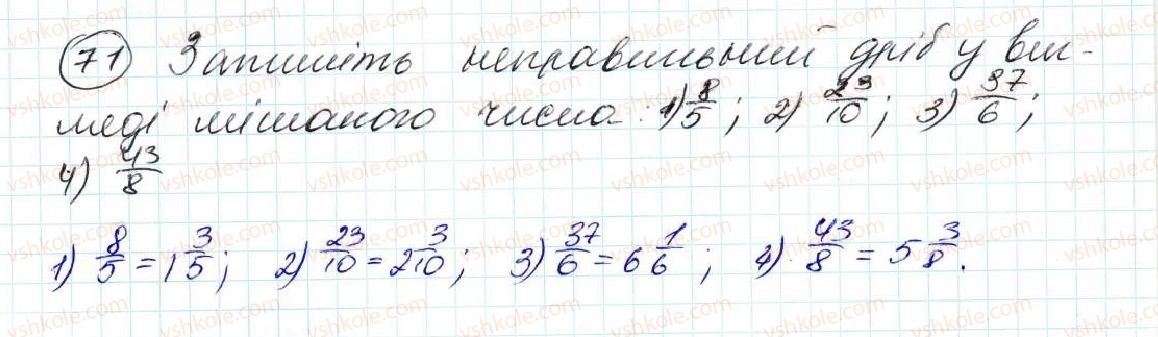 71 Запишіть неправильний дріб у виг-
ляді мішаного числа: 1) 8/5; 2) 23/10; 3) 37/6;
4) 43/8
1) 8/5 = 1 3/5; 2) 23/10 = 2 3/10; 3) 37/6 = 6 1/6; 4) 43/8 = 5 3/8.